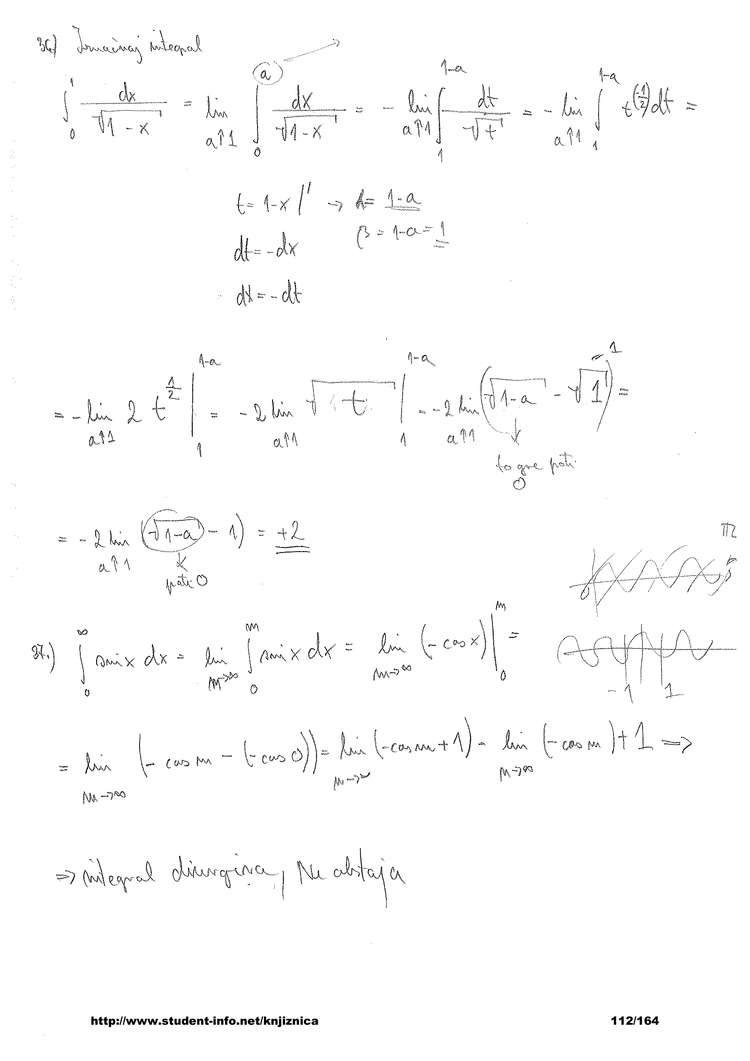 36.) Izračunaj integral
∫₀¹ dx/√(1-x) = lim_{a↑1} ∫₀^a dx/√(1-x) = - lim_{a↑1} ∫₁^{1-a} dt/√t = - lim_{a↑1} ∫₁^{1-a} t^(-1/2) dt =
t = 1-x |' → = 1-a
dt = -dx β = 1-0 = 1
dx = -dt
= - lim_{a↑1} 2 t^(1/2) |₁^{1-a} = -2 lim_{a↑1} √t |₁^{1-a} = -2 lim_{a↑1} (√(1-a) - √1) = = 1
to gre proti
0
= -2 lim_{a↑1} (√(1-a) - 1) = +2
proti 0
37.) ∫₀^∞ sin x dx = lim_{m→∞} ∫₀^m sin x dx = lim_{m→∞} (-cos x) |₀^m =
-1 1
= lim_{m→∞} (-cos m - (-cos 0)) = lim_{m→∞} (-cos m + 1) = lim_{m→∞} (-cos m) + 1 ⇒
⇒ integral divergira, Ne obstaja
http://www.student-info.net/knjiznica 112/164